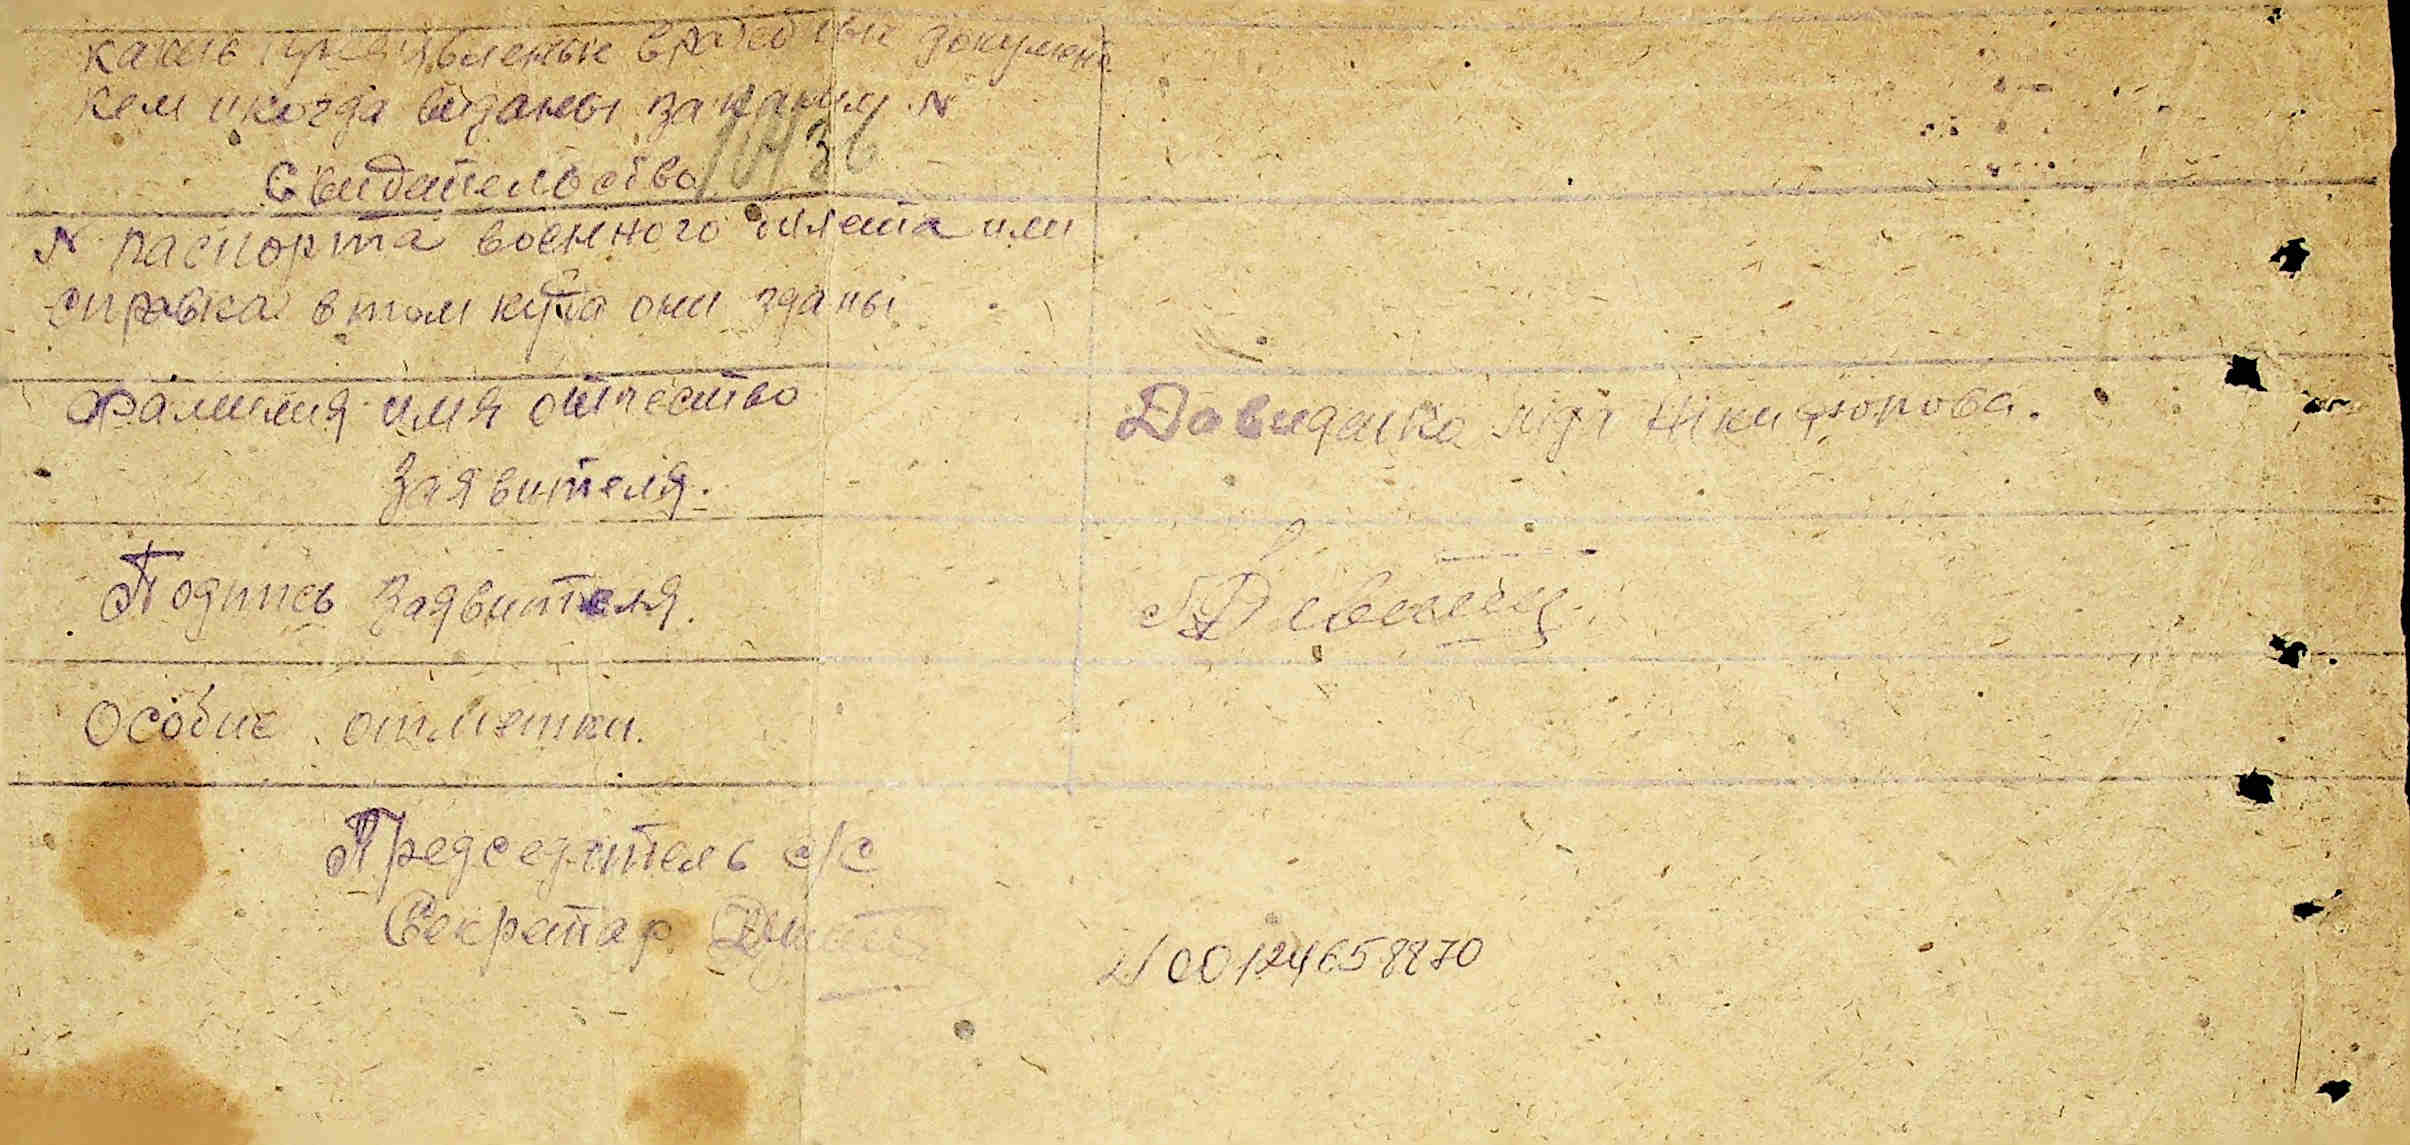 какие предявленые врачебные документ
кем и когда виданы за каким №
Свидательство
№ паспорта военного билета или
справка в том куда они зданы
Фамилия имя отчество
Давиданко Ліда Нікифорова.
заявителя.
Подпись заявителя.
Особие отметки.
Председатель с/с
Секретар
N 00124658870